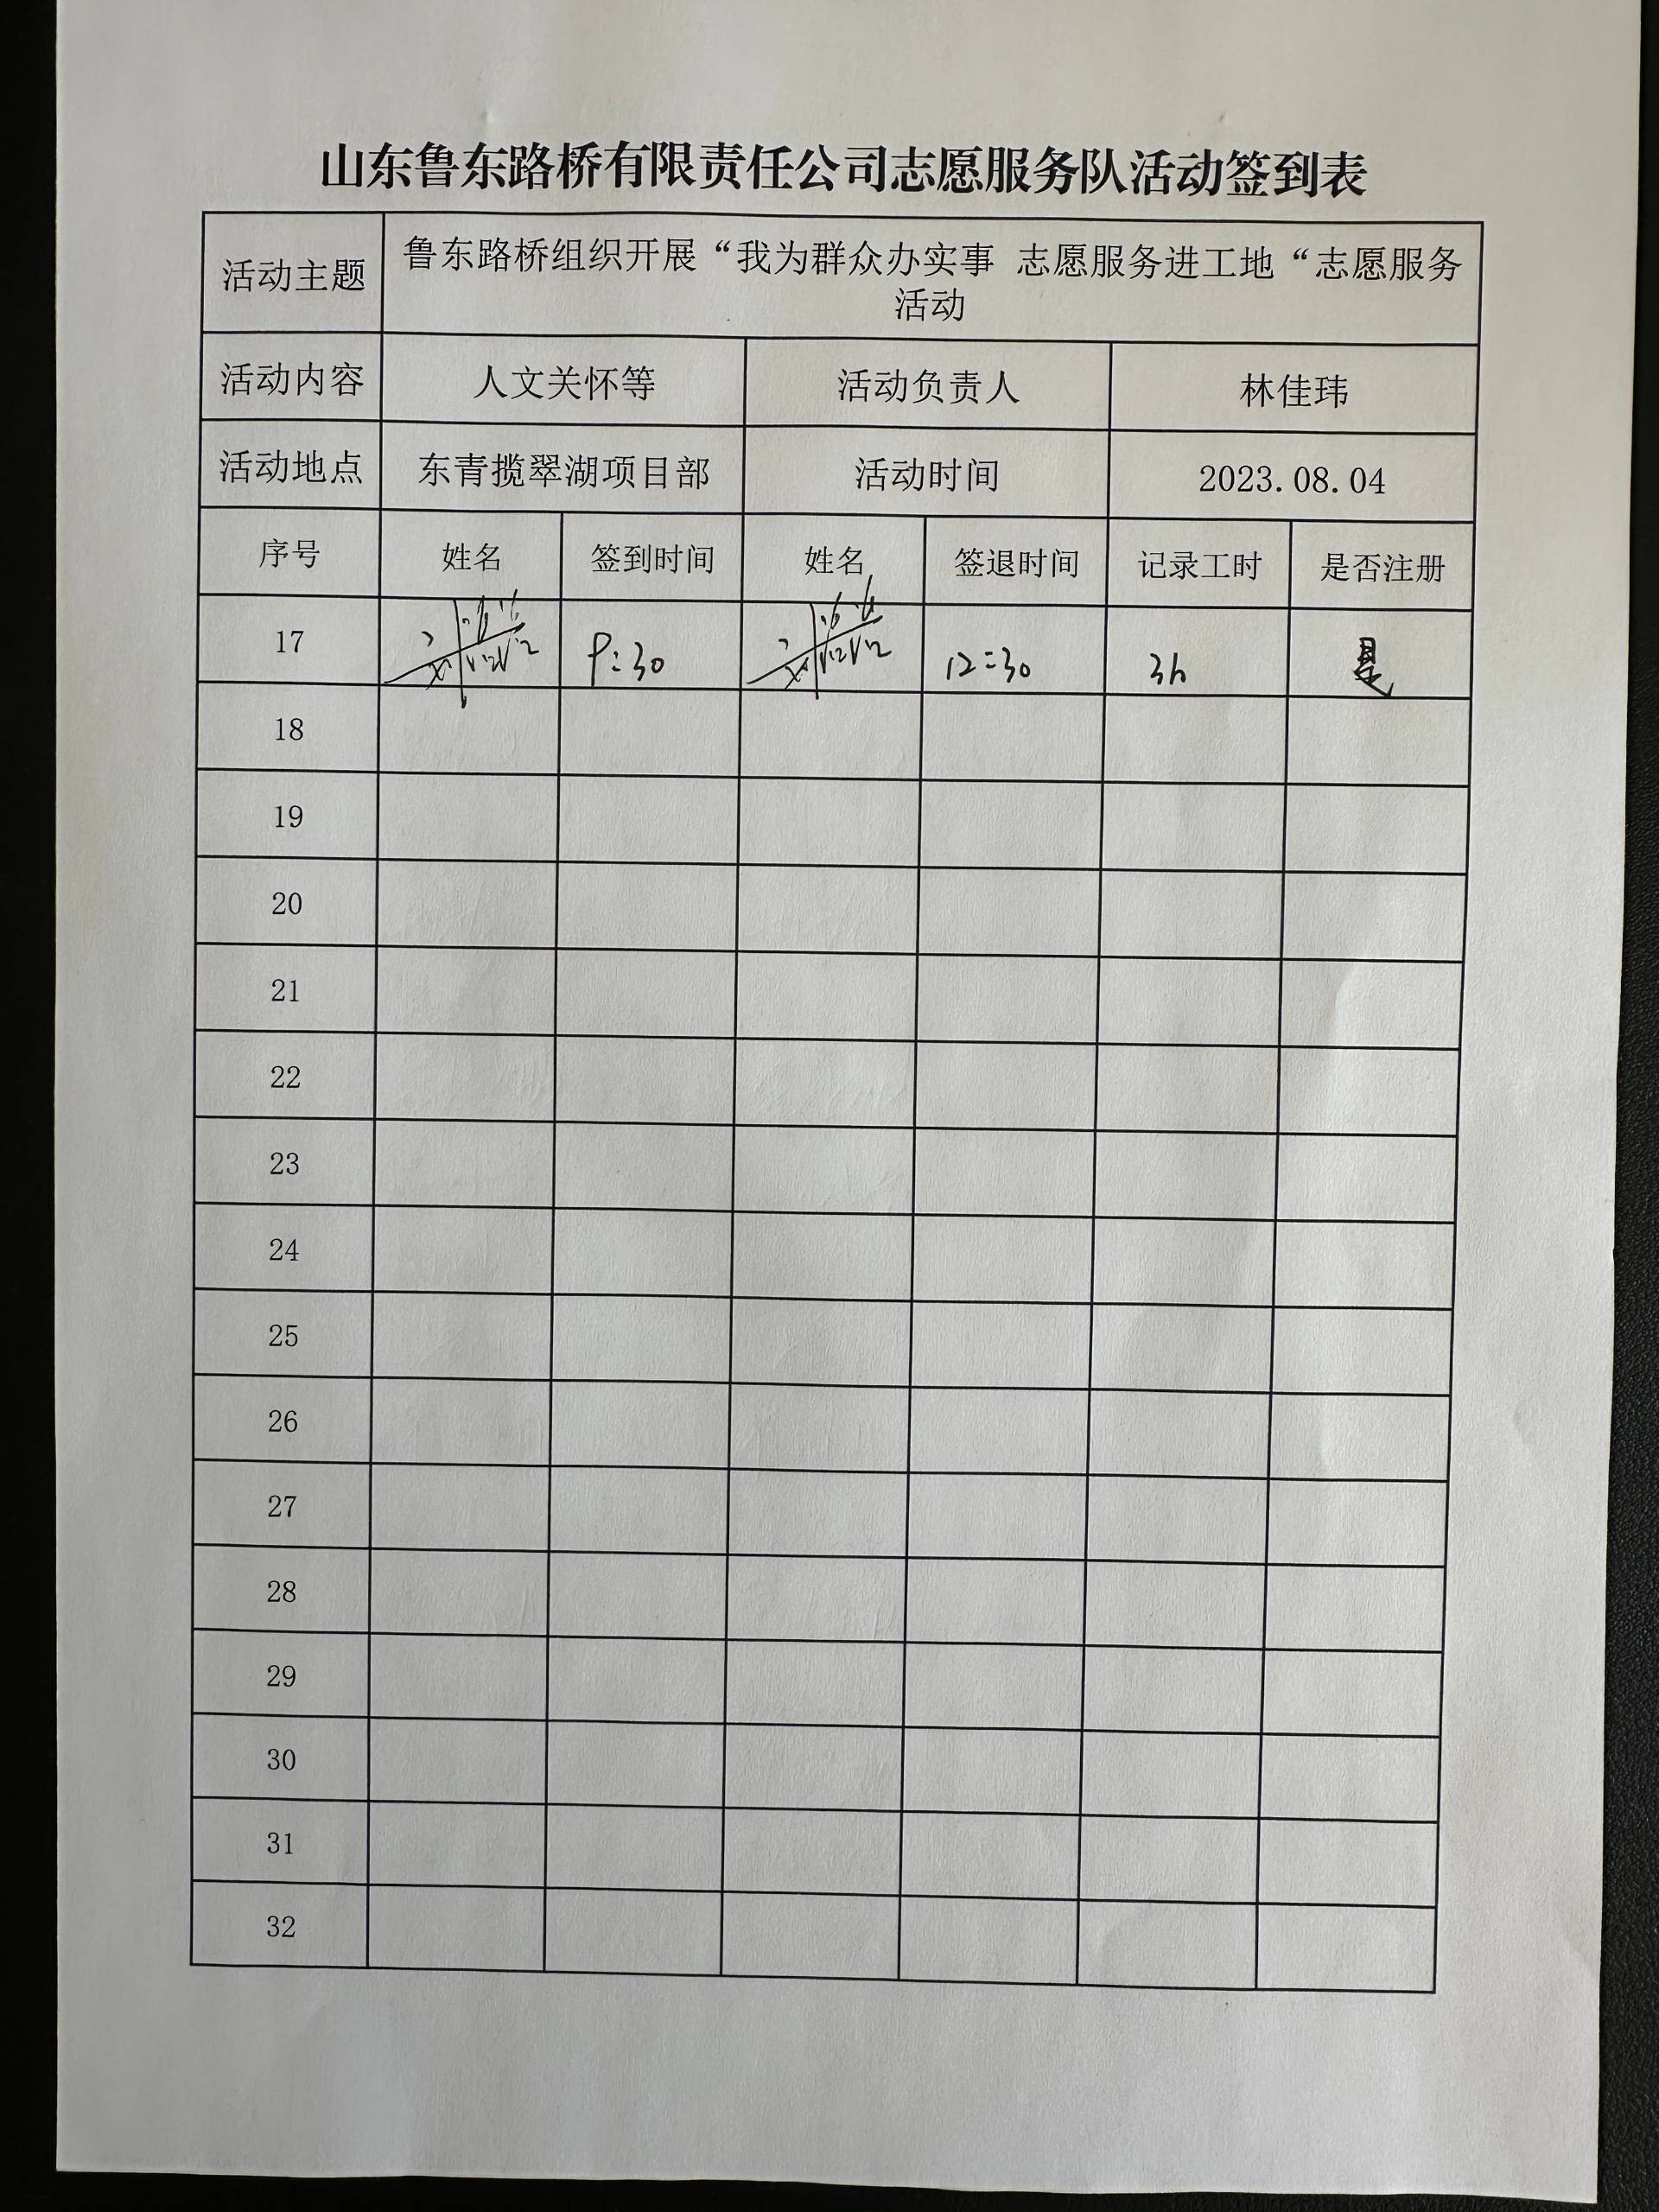 山东鲁东路桥有限责任公司志愿服务队活动签到表
活动主题 鲁东路桥组织开展“我为群众办实事 志愿服务进工地“志愿服务
活动
活动内容 人文关怀等 活动负责人 林佳玮
活动地点 东青揽翠湖项目部 活动时间 2023.08.04
序号 姓名 签到时间 姓名 签退时间 记录工时 是否注册
17 9:30 12:30 3h 是
18
19
20
21
22
23
24
25
26
27
28
29
30
31
32